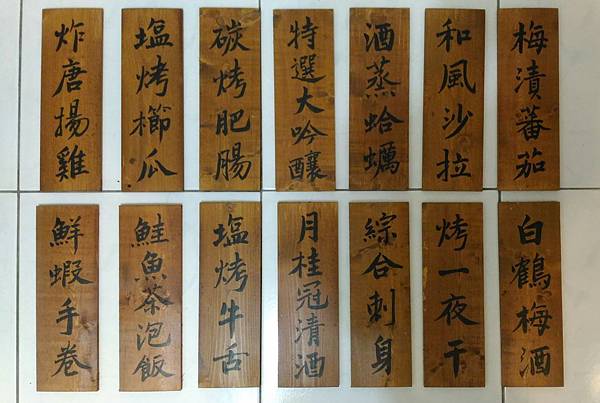 梅漬蕃茄
和風沙拉
酒蒸蛤蠣
特選大吟釀
碳烤肥腸
塩烤櫛瓜
炸唐揚雞
白鶴梅酒
烤一夜干
綜合刺身
月桂冠清酒
塩烤牛舌
鮭魚茶泡飯
鮮蝦手卷